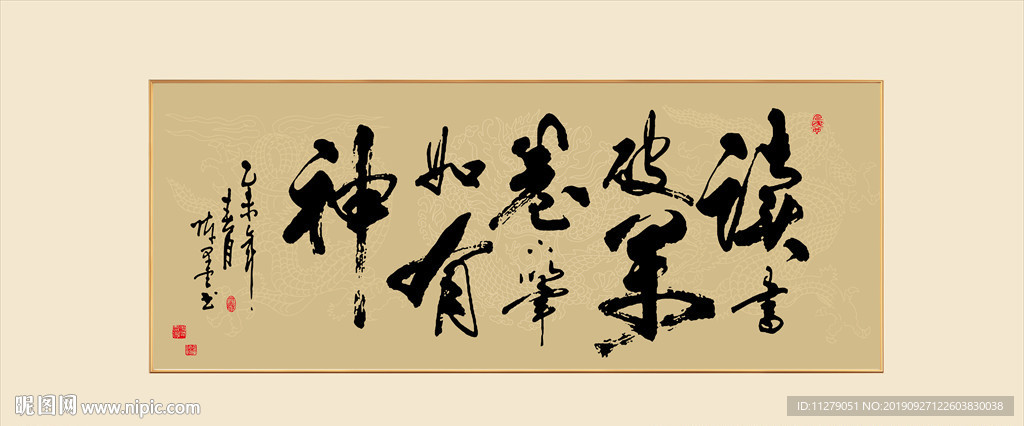 讀書
破萬
卷下筆
如有
神
乙未年
春月
昵图网 www.nipic.com
ID:11279051 NO:20190927122603830038